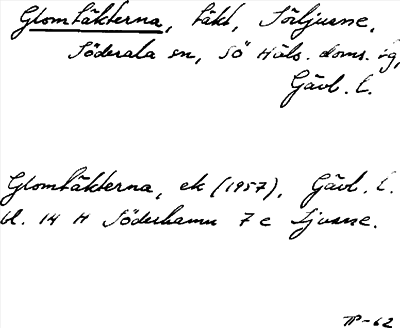 Glomtäkterna, täkt, Sörljusne,
Söderala sn, Sö Häls. doms. ög,
Gävl. l.
Glomtäkterna, ek (1957), Gävl. l.
bl. 14 H Söderhamn 7 e Ljusne.
TP-62